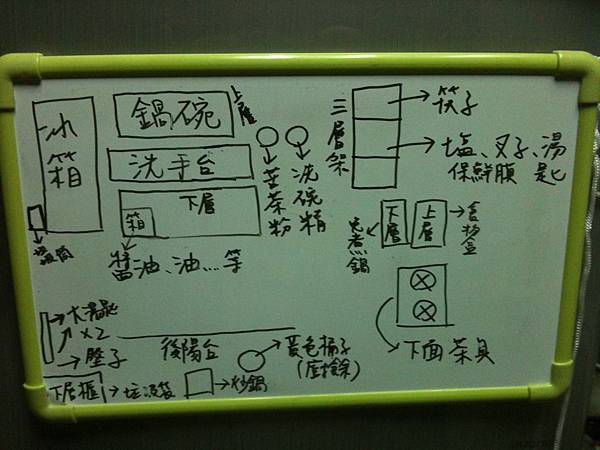 冰箱
鍋碗
上層
洗手台
下層
箱
醬油、油....等
苦茶粉
洗碗精
三層架
筷子
塩、叉子、湯匙
保鮮膜
下層
上層
免煮鍋
下面茶具
大湯匙
x2
墊子
後陽台
黃色桶子
(廚餘)
炒鍋
下層櫃
垃圾袋